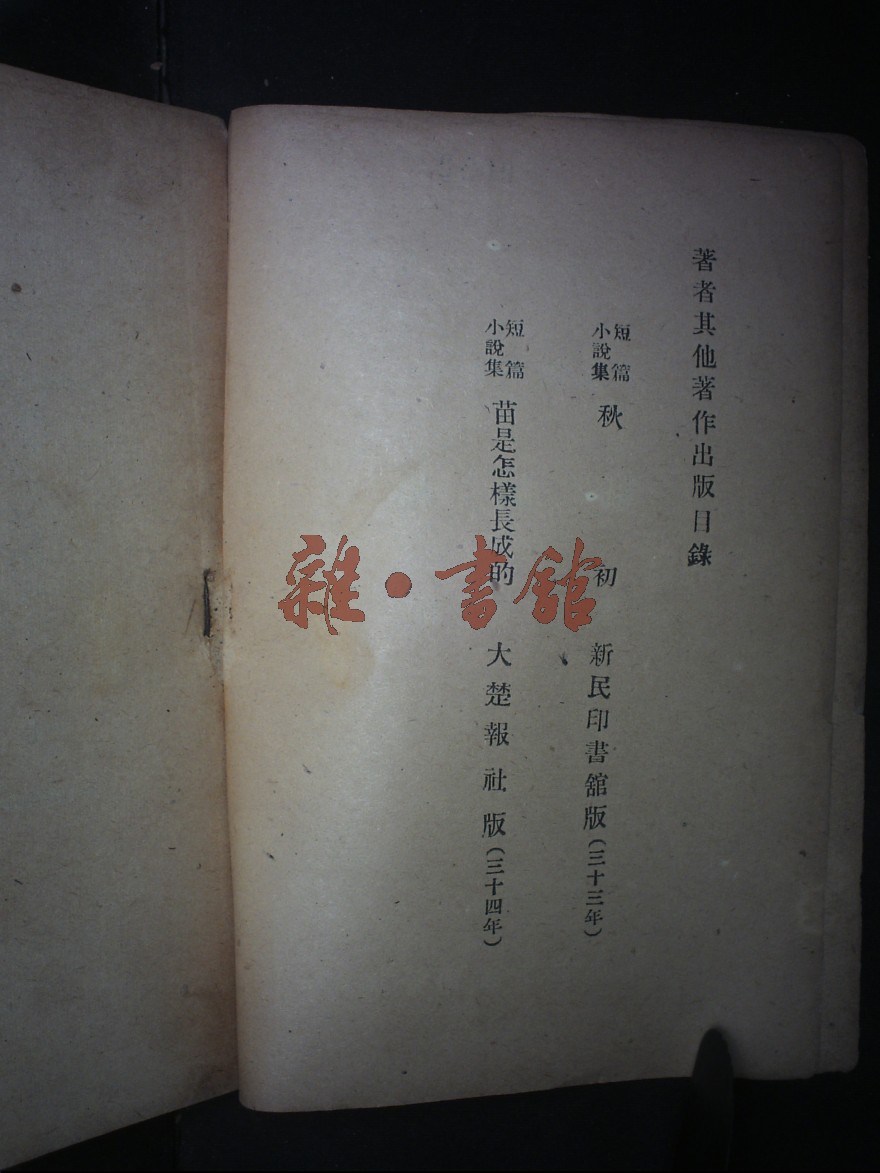 著者其他著作出版目錄
短篇小說集 秋初 新民印書館版(三十三年)
短篇小說集 苗是怎樣長成的 大楚報社版(三十四年)
雜·書館